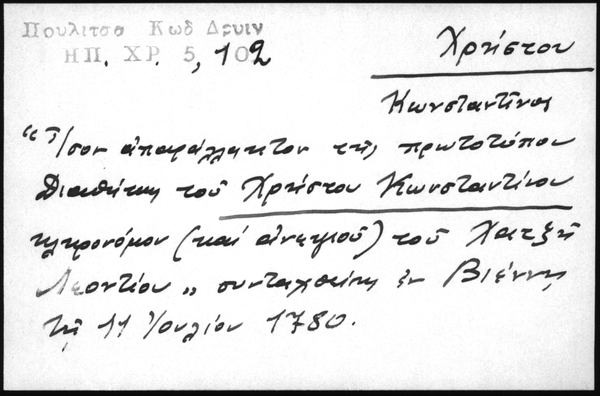 Πουλιτσα Κωδ Δρυιν
ΗΠ. ΧΡ. 5, 102
Χρήστου
Κωνσταντῖνος
"Ἴσον ἀπαράλλακτον τῆς πρωτοτύπου
Διαθήκης τοῦ Χρήστου Κωνσταντίνου
κληρονόμου (καί ἀνεψιοῦ) τοῦ Χατζῆ
Λεοντίου" συνταχθείσης ἐν Βιέννῃ
τῇ 11 Ἰουλίου 1780.